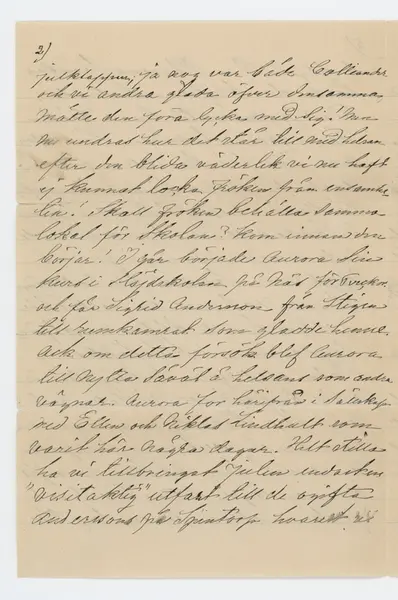 2)
julklappen, ja nog var både Colliander
och vi andra glada öfver densamma
måtte den föra lycka med sig! Men
nu undras hur det står till med helsan
efter den blida väderlek vi nu haft
ej kunnat locka Fröken från ensamhe
ten. Skall Fröken behålla samma
lokal för Skolan? kom innan den
börjar! I går började Aurora sin
kurs i Slöjdskolan på Näs för
och får Sigrid Andersson från Stigen
till rumkamrat som gladde henne.
ack om detta försök blef Aurora
till nytta såväl å helsans som andra
vägnar. Aurora for härifrån i sällskap
med Ellen och Niklas Lindhult som
varit här några dagar. Helt stilla
ha vi tillbringat Julen endast en
"visitaktig" utfart till de ogifta
Anderssons på hvarest